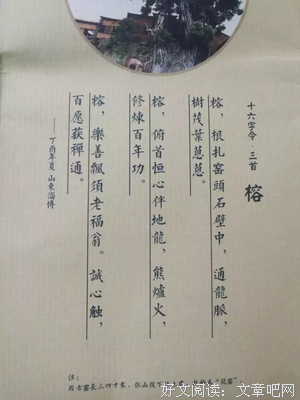 十六字令·三首
榕
榕，根扎窑頭石壁中，通龍脈，
樹茂葉蔥蔥。
榕，俯首恒心伴地龍，熊爐火，
修煉百年功。
榕，樂善飄須老福翁。誠心觸，
百愿获禪通。
——丁酉年夏 山東淄博
注：
因古窑長三四十米，依山
好文阅读：文章吧网